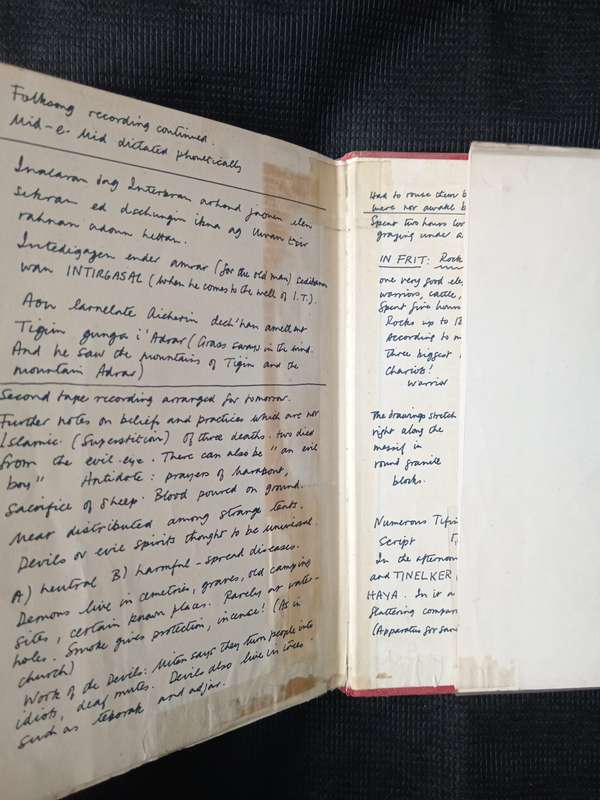 Folksong recording continued.
Mid-e-Mid dictated phonetically
Inalaran dag Interaran arhand jaonen elen
sikran ed dschungin ikna ag Uwan tsir
rahnan adoun hettan.
Intedigagen ender amrar (for the old man)
wan INTIRGASAL (when he comes to the well of I.T.).
Aou larnelate Aicherin dech'han amellent
Tigim gunga i'Adrar (Grass sways in the wind.
And he saw the mountains of Tigim and the
mountain Adrar)
Second tape recording arranged for tomorrow.
Further notes on beliefs and practices which are not
Islamic. (Superstition) of three deaths. two died
from the evil-eye. There can also be "an evil
boy" Antidote: prayers of marabout,
sacrifice of sheep. Blood poured on ground.
Meat distributed among strange tents.
Devils or evil spirits thought to be universal.
A) neutral B) harmful - spread diseases.
Demons live in cemetries, graves, old camping
sites, certain known places. Rarely at water-
holes. Smoke gives protection, incense! (As in
church)
Work of the Devils: says they turn people into
idiots, deaf mutes. Devils also live in trees
such as teborak and adjar.
Had to rouse them
were not awake
Spent two hours
grazing under a
IN FRIT: Rock
one very good
warriors, cattle,
Spent five hours
Rocks up to
According to
three biggest
Chariots!
Warrior
The drawings stretch
right along the
massif in
round granite
blocks.
Numerous
Script
In the afternoon
and TINELKER
HAYA. In a
flattering
(Apparatus for